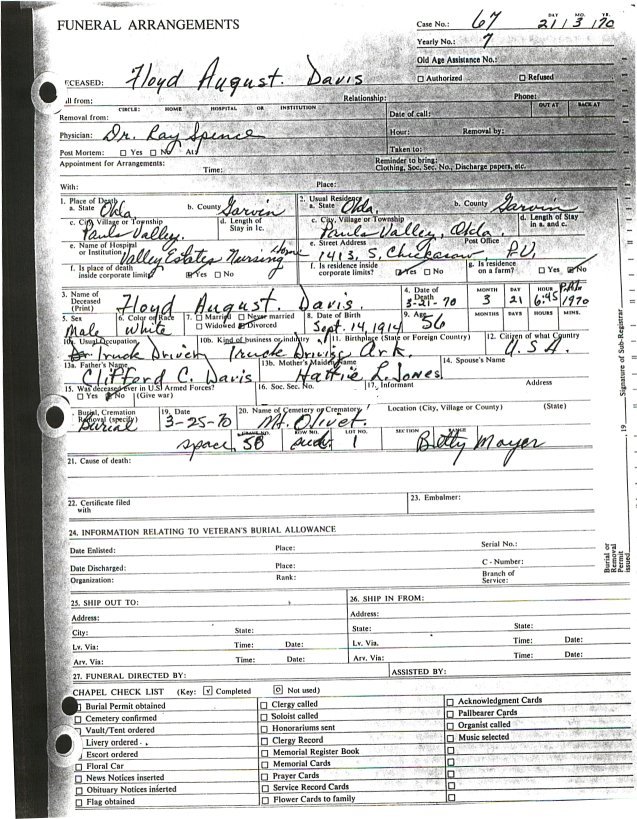 FUNERAL ARRANGEMENTS
Case No.: 67 DAY MO. YR. 21 3 70
Yearly No.: 7
Old Age Assistance No.:
☐ Authorized ☐ Refused
ECEASED: Floyd August. Davis
Relationship: Phone:
all from:
CIRCLE: HOME HOSPITAL OR INSTITUTION OUT AT BACK AT
Removal from: Date of call:
Physician: Dr. Ray Spence Hour: Removal by:
Post Mortem: ☐ Yes ☐ No At: Taken to:
Appointment for Arrangements: Time: Reminder to bring:
Clothing, Soc. Sec. No., Discharge papers, etc.
With: Place:
1. Place of Death 2. Usual Residence
a. State Okla. b. County Garvin a. State Okla. b. County Garvin
c. City Village or Township Pauls Valley. d. Length of Stay in 1c. c. City, Village or Township Pauls Valley, Okla. d. Length of Stay in a. and c.
e. Name of Hospital or Institution Valley Estates Nursing Home e. Street Address 1413 S. Chickasaw Post Office P.V.
f. Is place of death inside corporate limits? ☑ Yes ☐ No f. Is residence inside corporate limits? ☑ Yes ☐ No g. Is residence on a farm? ☐ Yes ☑ No
3. Name of Deceased (Print) Floyd August. Davis. 4. Date of Death 3-21-70 MONTH 3 DAY 21 HOUR 6:45 P.M. 1970
5. Sex Male 6. Color or Race White 7. ☐ Married ☐ Never married ☐ Widowed ☑ Divorced 8. Date of Birth Sept. 14, 1914 9. Age 56 MONTHS DAYS HOURS MINS.
10a. Usual Occupation Truck Driver 10b. Kind of business or industry Truck Driving 11. Birthplace (State or Foreign Country) Ark. 12. Citizen of what Country U.S.A.
13a. Father's Name Clifford C. Davis 13b. Mother's Maiden Name Hattie L. Jones 14. Spouse's Name
15. Was deceased ever in U.S. Armed Forces? ☐ Yes ☑ No (Give war) 16. Soc. Sec. No. 17. Informant Address
18. Burial, Cremation Removal (specify) Burial 19. Date 3-25-70 20. Name of Cemetery or Crematory Mt. Olivet. Location (City, Village or County) (State)
space 5B ROW NO. LOT NO. 1 SECTION Betty Mayer
21. Cause of death:
22. Certificate filed with 23. Embalmer:
24. INFORMATION RELATING TO VETERAN'S BURIAL ALLOWANCE
Date Enlisted: Place: Serial No.:
Date Discharged: Place: C - Number:
Organization: Rank: Branch of Service:
25. SHIP OUT TO: 26. SHIP IN FROM:
Address: Address:
City: State: State: Time: Date:
Lv. Via: Time: Date: Lv. Via. Time: Date:
Arv. Via: Time: Date: Arv. Via: Time: Date:
27. FUNERAL DIRECTED BY: ASSISTED BY:
CHAPEL CHECK LIST (Key: ☑ Completed ☐ Not used)
☐ Burial Permit obtained ☐ Clergy called ☐ Acknowledgment Cards
☐ Cemetery confirmed ☐ Soloist called ☐ Pallbearer Cards
☐ Vault/Tent ordered ☐ Honorariums sent ☐ Organist called
Livery ordered ☐ Clergy Record ☐ Music selected
Escort ordered ☐ Memorial Register Book ☐
☐ Floral Car ☐ Memorial Cards ☐
☐ News Notices inserted ☐ Prayer Cards ☐
☐ Obituary Notices inserted ☐ Service Record Cards ☐
☐ Flag obtained ☐ Flower Cards to family ☐
Signature of Sub-Registrar
19
Burial or Removal Permit issued